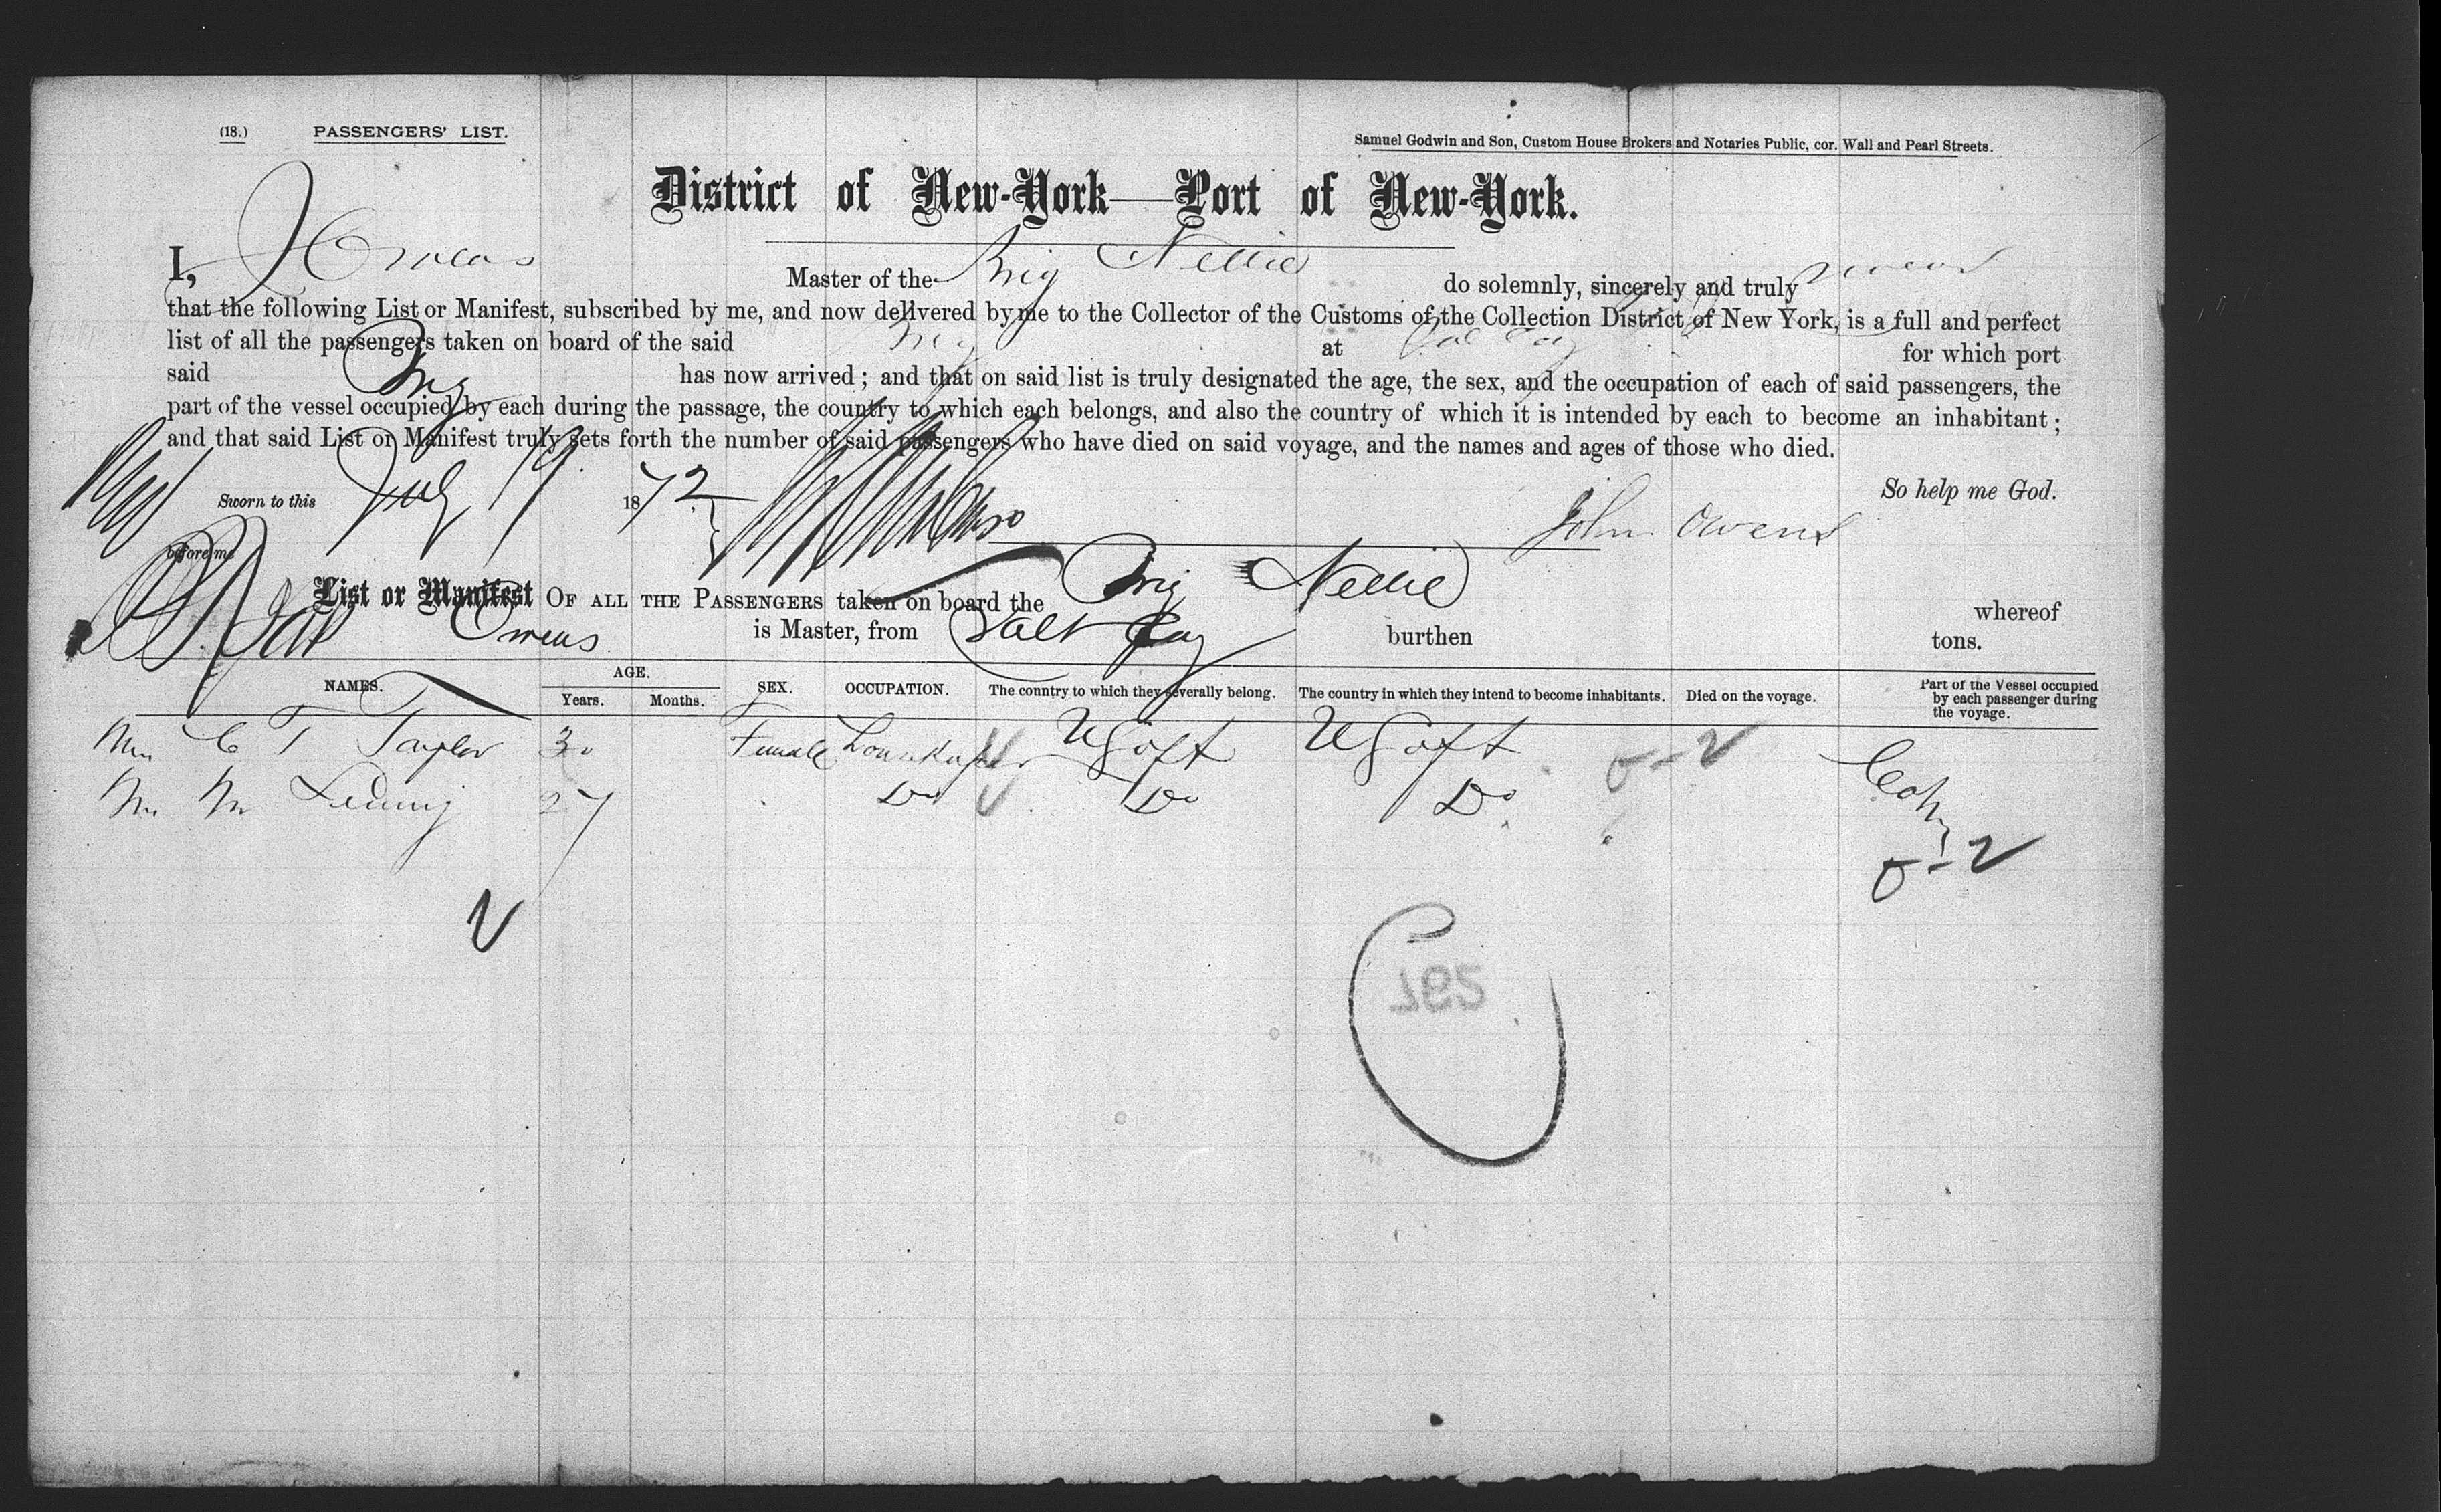 (18.) PASSENGERS' LIST.
Samuel Godwin and Son, Custom House Brokers and Notaries Public, cor. Wall and Pearl Streets.
District of New-York—Port of New-York.
I, J Owens Master of the Brig Nellie do solemnly, sincerely and truly swear
that the following List or Manifest, subscribed by me, and now delivered by me to the Collector of the Customs of the Collection District of New York, is a full and perfect
list of all the passengers taken on board of the said Brig at for which port
said Brig has now arrived; and that on said list is truly designated the age, the sex, and the occupation of each of said passengers, the
part of the vessel occupied by each during the passage, the country to which each belongs, and also the country of which it is intended by each to become an inhabitant;
and that said List or Manifest truly sets forth the number of said passengers who have died on said voyage, and the names and ages of those who died.
So help me God.
Sworn to this July 19 1872
John Owens
before me
List or Manifest OF ALL THE PASSENGERS taken on board the Brig Nellie whereof
Owens is Master, from Salt Cay burthen tons.
NAMES. AGE. Years. Months. SEX. OCCUPATION. The country to which they severally belong. The country in which they intend to become inhabitants. Died on the voyage. Part of the Vessel occupied by each passenger during the voyage.
C T Taylor 30 Female U S of A U S of A
27 Do Do Do
292